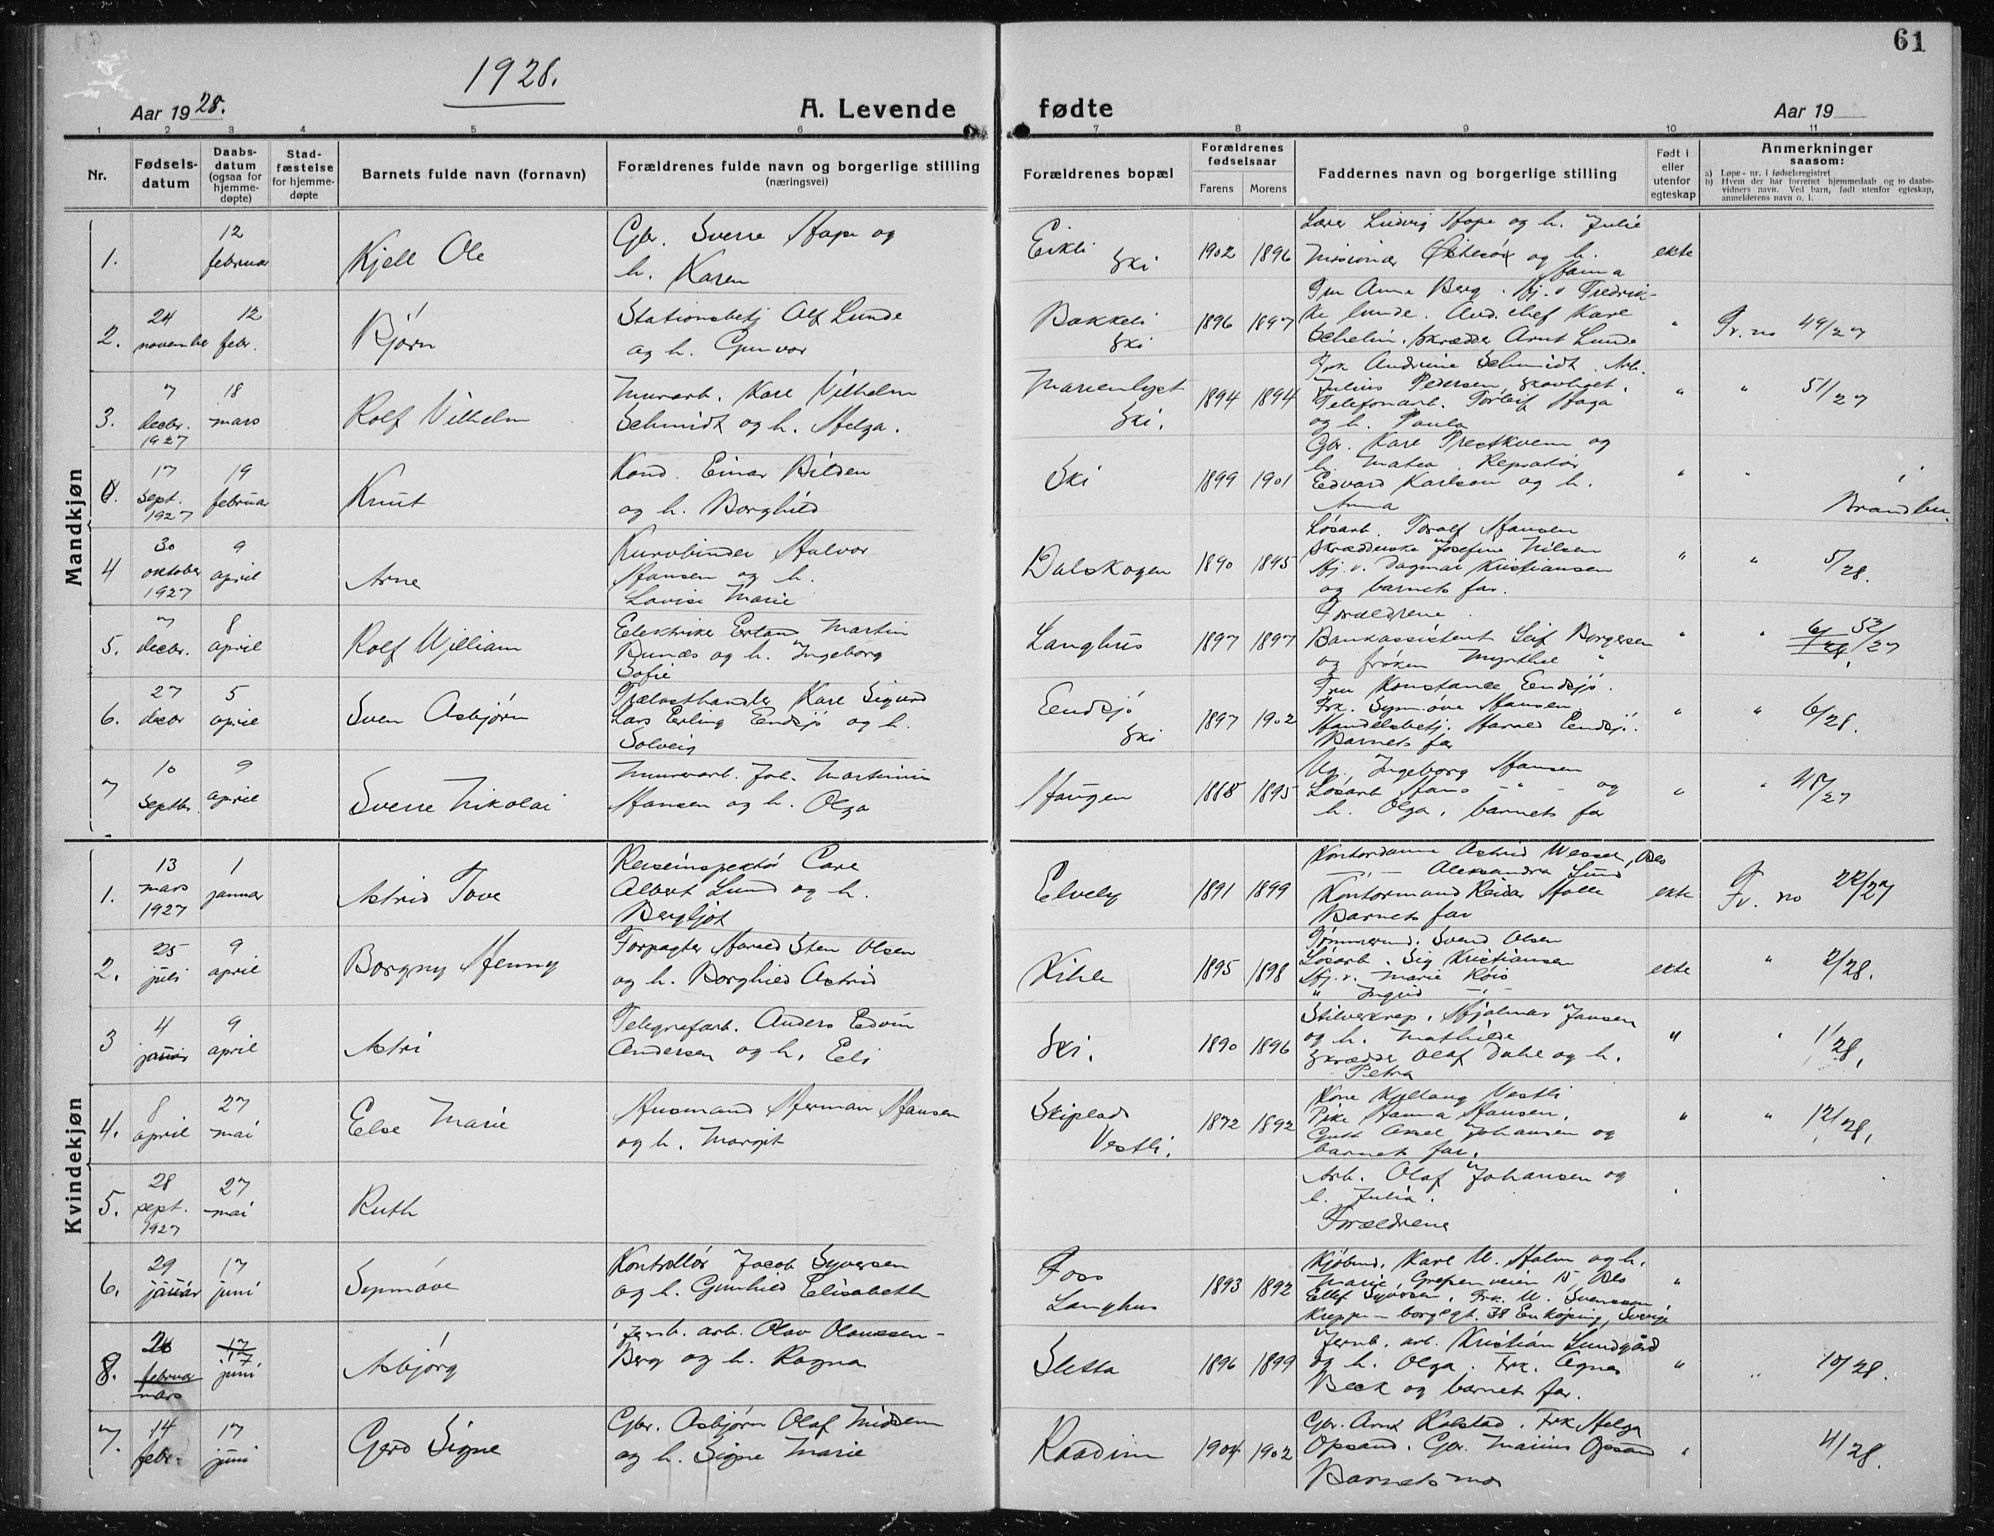 61
1928.
Aar 1928.
A. Levende
fødte
Aar 19
1 2 3 4 5 6 7 8 9 10 11
Nr.
Fødsels-
datum
Daabs-
datum
(ogsaa for
hjemme-
døpte)
Stad-
fæstelse
for hjemme-
døpte
Barnets fulde navn (fornavn)
Forældrenes fulde navn og borgerlige stilling
(næringsvei)
Forældrenes bopæl
Forældrenes
fødselsaar
Farens Morens
Faddernes navn og borgerlige stilling
Født i
eller
utenfor
egteskap
Anmerkninger
saasom:
a) Løpe-nr. i fødselsregistret
b) Hvem der har forrettet hjemmedaab og to daabs-
vidners navn. Ved barn, født utenfor egteskap,
anmelderens navn o. l.
Mandkjøn
1.
12
februar
Kjell Ole
Gbr. Sverre Hope og
h. Karen
Eikli
Ski
1902 1896
Lærer Ludvig Hope og h. Julie
Missionær og h.
Hanna
ekte
2.
24
november
12
febr.
Bjørn
Stationsbetj Alf Lunde
og h. Gunvor
Bakkeli
Ski
1896 1897
Fru Anna Berg. Hj. v Fredrik-
ke Lunde. Aud. chef Karl
Schelin, skrædder Arnt Lunde
"
Fr. no 49/27
3.
7
decbr.
1927
18
mars
Rolf Vilhelm
Murarb. Karl Vilhelm
Schmidt og h. Helga.
Marienlyst
Ski.
1894 1894
Frk Andrine Schmidt. Arb.
Julius Pedersen, Skovlyst.
Telefonarb. Torleif Haga
og h. Paula
"
" 51/27
0.
17
sept.
1927
19
februar
Knut
Kond. Einar Bilden
og h. Borghild
Ski
1899 1901
Gbr. Karl Prestkvern og
h. Matea. Repratør
Edvard Karlson og h.
Anna
"
"
Brandbu.
4
30
oktober
1927
9
april
Arne
Kurvbinder Halvor
Hansen og h.
Lovise Marie
Dalskogen
1890 1895
Løsarb. Toralf Hansen
Skrædderske Josefine Nilsen
Hj. v. Dagmar Kristiansen
og barnets far.
"
" 5/28.
5.
7
decbr.
8
april
Rolf William
Elektriker Erland Martin
Bunæs og h. Ingeborg
Sofie
Langhus
1897 1897
Forældrene.
Bankassistent Leif Borgersen
og frøken Myrthle "
"
" 6/28. 53/27
6.
27
decbr
5
april
Sven Asbjørn
Trælasthandler Karl Sigurd
Lars Erling Endsjø og h.
Solveig
Endsjø
Ski
1897 1902
Fru Konstance Endsjø.
Frk. Synnøve Hansen.
Handelsbetj. Harald Endsjø.
Barnets far
"
" 6/28.
7
10
septbr.
9
april
Sverre Nikolai
Murerarb. Joh. Martinius
Hansen og h. Olga
Haugen
1888 1895
Ug. Ingeborg Hansen
Løsarb Hans - " - og
h. Olga, barnets far
"
" 48/27
Kvindekjøn
1.
13
mars
1927
1
januar
Astrid Tove
Reiseinspektør Carl
Albert Lund og h.
Bergljot
Elvely
1891 1899
Kontordame Astrid Wessel, Oslo
—"— Aleksandra Lund
Kontormand Reidar Holle
Barnets far
ekte
Fr. no 22/27
2.
25
juli
9
april
Borgny Henny
Forpagter Harald Sten Olsen
og h. Borghild Astrid
Kihle
1895 1898
Tømmermd. Svend Olsen
Løsarb. Sig Kristiansen
Hj. v. Marie Røis
" Ingrid —"—
ekte
" 2/28.
3
4
januar
9
april
Astri
Telegrafarb. Anders Edvin
Andersen og h. Elli
Ski.
1890 1896
Hjalmar Jansen
og h. Mathilde
Skrædder Olaf Dahl og h.
Petra
"
" 1/28,
4.
8
april
27
mai
Else Marie
Husmand Herman Hansen
og h. Margit
Skiplad
Vestli.
1872 1892
Kone Vestli
Pike Hanna Hansen.
Gutt Aksel Johansen og
barnets far.
"
" 12/28,
5.
28
sept.
1927
27
mai
Ruth
Arb. Olaf Johansen og
h. Julia.
Forældrene
"
6.
29
januar
17
juni
Synnøve
Kontrollør Jacob Syversen
og h. Gunhild Elisabeth
Foss
Langhus
1893 1892
Kjøbmd. Karl M. Holm og h.
Marie, Grefsenveien 15 Oslo
Ellef Syversen, Frk. M. Svensson,
borgsgt. 38 Enköping, Sverige
"
8.
26
februar
mars
17
17
juni
Asbjørg
Jernb. arb. Olav Olaussen-
Berg og h. Ragna
Sletta
1896 1899
Jernb. arb. Kristian Lundgård
og h. Olga. Frk. Agnes
Beck og barnet far.
"
" 10/28.
7.
14
febr.
17
juni
Gerd Signe
Gbr. Asbjørn Olaf Midsem
og h. Signe Marie
Raadim
1904 1902
Gbr. Arnt Kolstad. Frk Helga
Opsand. Gbr. Marius Opsand
Barnets mor
"
4/28.